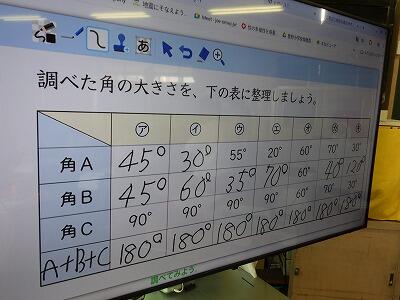 あ
調べた角の大きさを、下の表に整理しましょう。
ア イ ウ エ オ カ キ
角A 45° 30° 55° 20° 60° 70° 30°
角B 45° 60° 35° 70° 60° 40° 120°
角C 90° 90° 90° 90° 60° 70° 30°
A+B+C 180° 180° 180° 180° 180° 180° 180°
調べてみよう